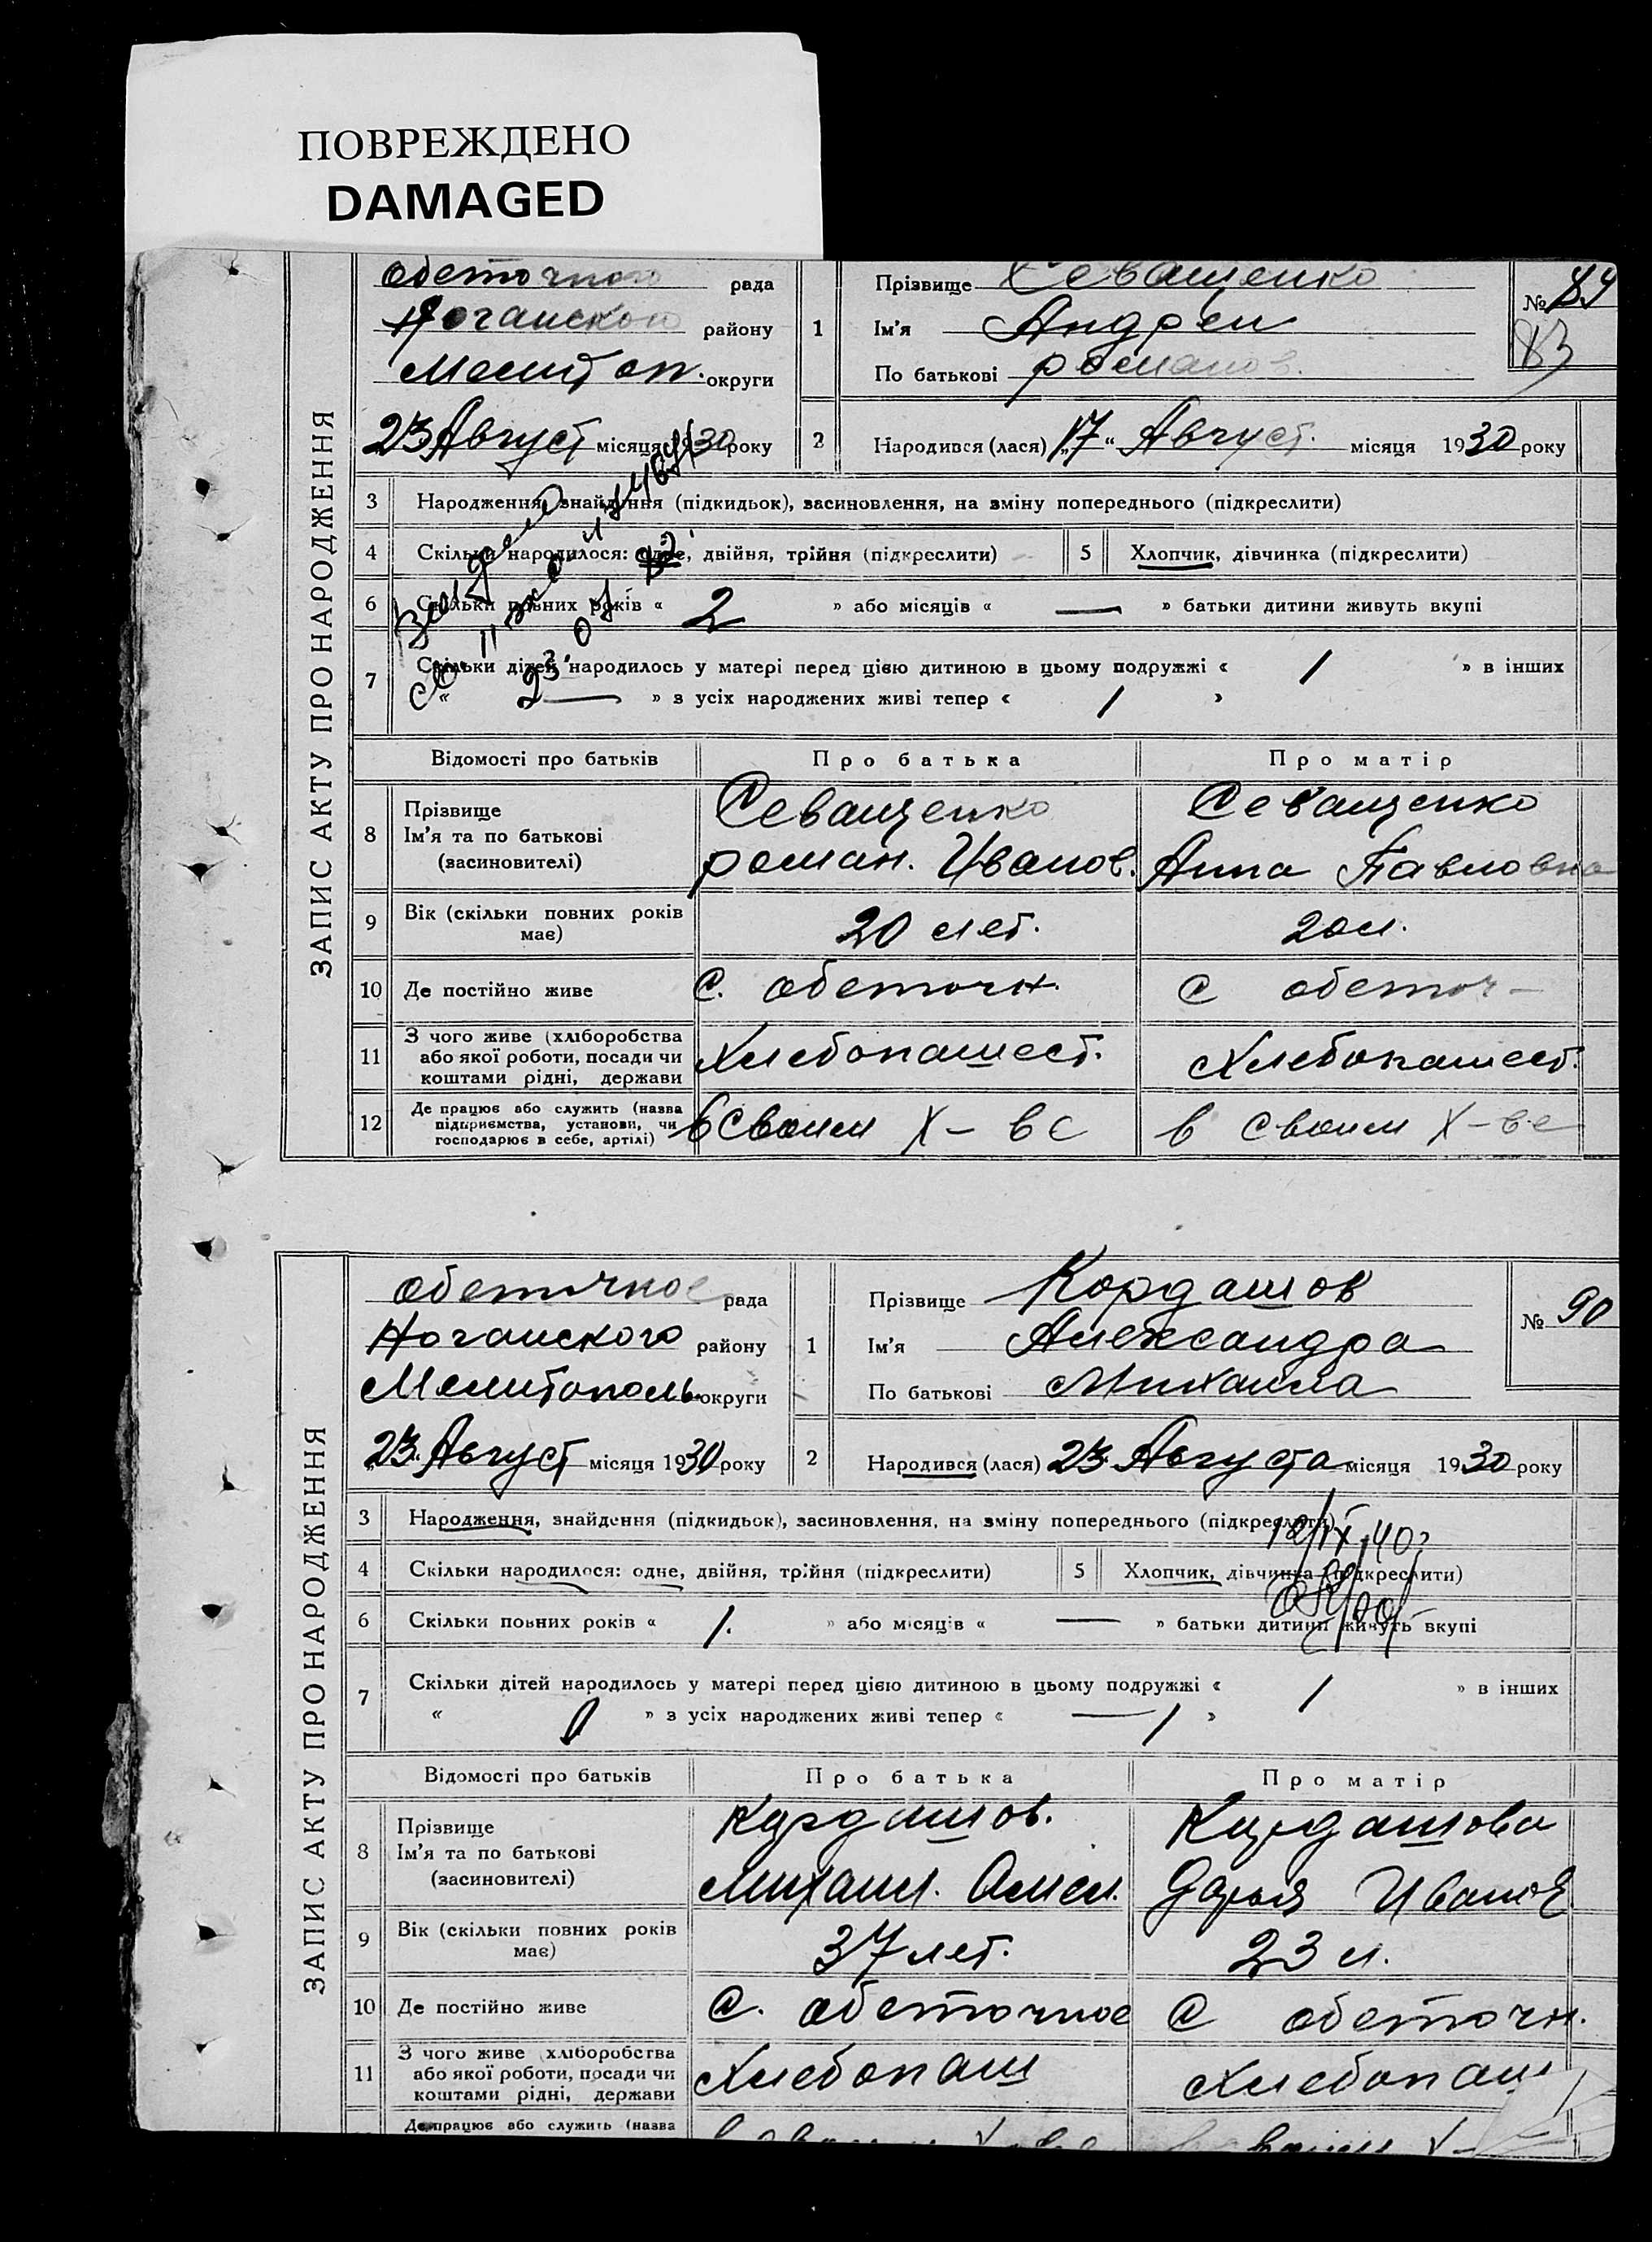 ПОВРЕЖДЕНО
DAMAGED
ЗАПИС АКТУ ПРО НАРОДЖЕННЯ
обеточного рада
Ногайского району
Мелитоп. округи
23 Август місяця 1930 року
1
Прізвище Севащенко
Ім'я Андрей
По батькові романов.
№ 89
83
2
Народився (лася) „17“ Август. місяця 1930 року
3 Народження, знайдення (підкидьок), засиновлення, на зміну попереднього (підкреслити)
4 Скільки народилося: одне, двійня, трійня (підкреслити) 5 Хлопчик, дівчинка (підкреслити)
6 Скільки повних років « 2 » або місяців « — » батьки дитини живуть вкупі
7 Скільки дітей народилось у матері перед цією дитиною в цьому подружжі « 1 » в інших
« — » з усіх народжених живі тепер « 1 »
Відомості про батьків Про батька Про матір
8 Прізвище
Ім'я та по батькові
(засиновителі)
Севащенко
роман. Иванов.
Севащенко
Анна Павловна
9 Вік (скільки повних років
має)
20 лет.
20 л.
10 Де постійно живе С. обеточн. С обеточ–
11 З чого живе (хліборобства
або якої роботи, посади чи
коштами рідні, держави
Хлебопашест.
Хлебопашест.
12 Де працює або служить (назва
підприємства, установи, чи
господарює в себе, артілі)
в своем х–ве
в своем х–ве
ЗАПИС АКТУ ПРО НАРОДЖЕННЯ
обеточное рада
Ногайского району
Мелитополь. округи
„23. Август місяця 1930 року
1
Прізвище Кордашов
Ім'я Александра
По батькові Михаила
№ 90
2
Народився (лася) 23. Августа місяця 1930 року
3 Народження, знайдення (підкидьок), засиновлення, на зміну попереднього (підкреслити)
4 Скільки народилося: одне, двійня, трійня (підкреслити) 5 Хлопчик, дівчинка (підкреслити)
6 Скільки повних років « 1. » або місяців « — » батьки дитини живуть вкупі
7 Скільки дітей народилось у матері перед цією дитиною в цьому подружжі « 1 » в інших
« 0 » з усіх народжених живі тепер « — 1 »
Відомості про батьків Про батька Про матір
8 Прізвище
Ім'я та по батькові
(засиновителі)
Кардашов.
Михаил. Омел.
Кардашова
Дарья Иванов
9 Вік (скільки повних років
має)
37 лет.
23 л.
10 Де постійно живе С. обеточное С обеточн.
11 З чого живе (хліборобства
або якої роботи, посади чи
коштами рідні, держави
Хлебопаш
Хлебопаш
Де працює або служить (назва